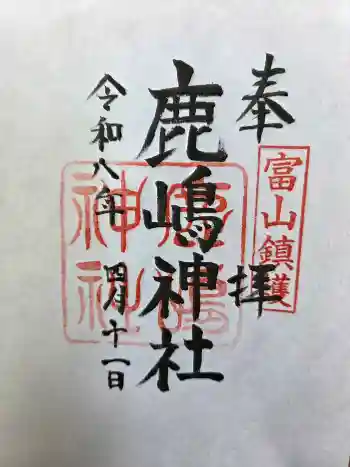 奉拝
富山鎮護
鹿嶋神社
鹿嶋神社
令和八年四月十一日